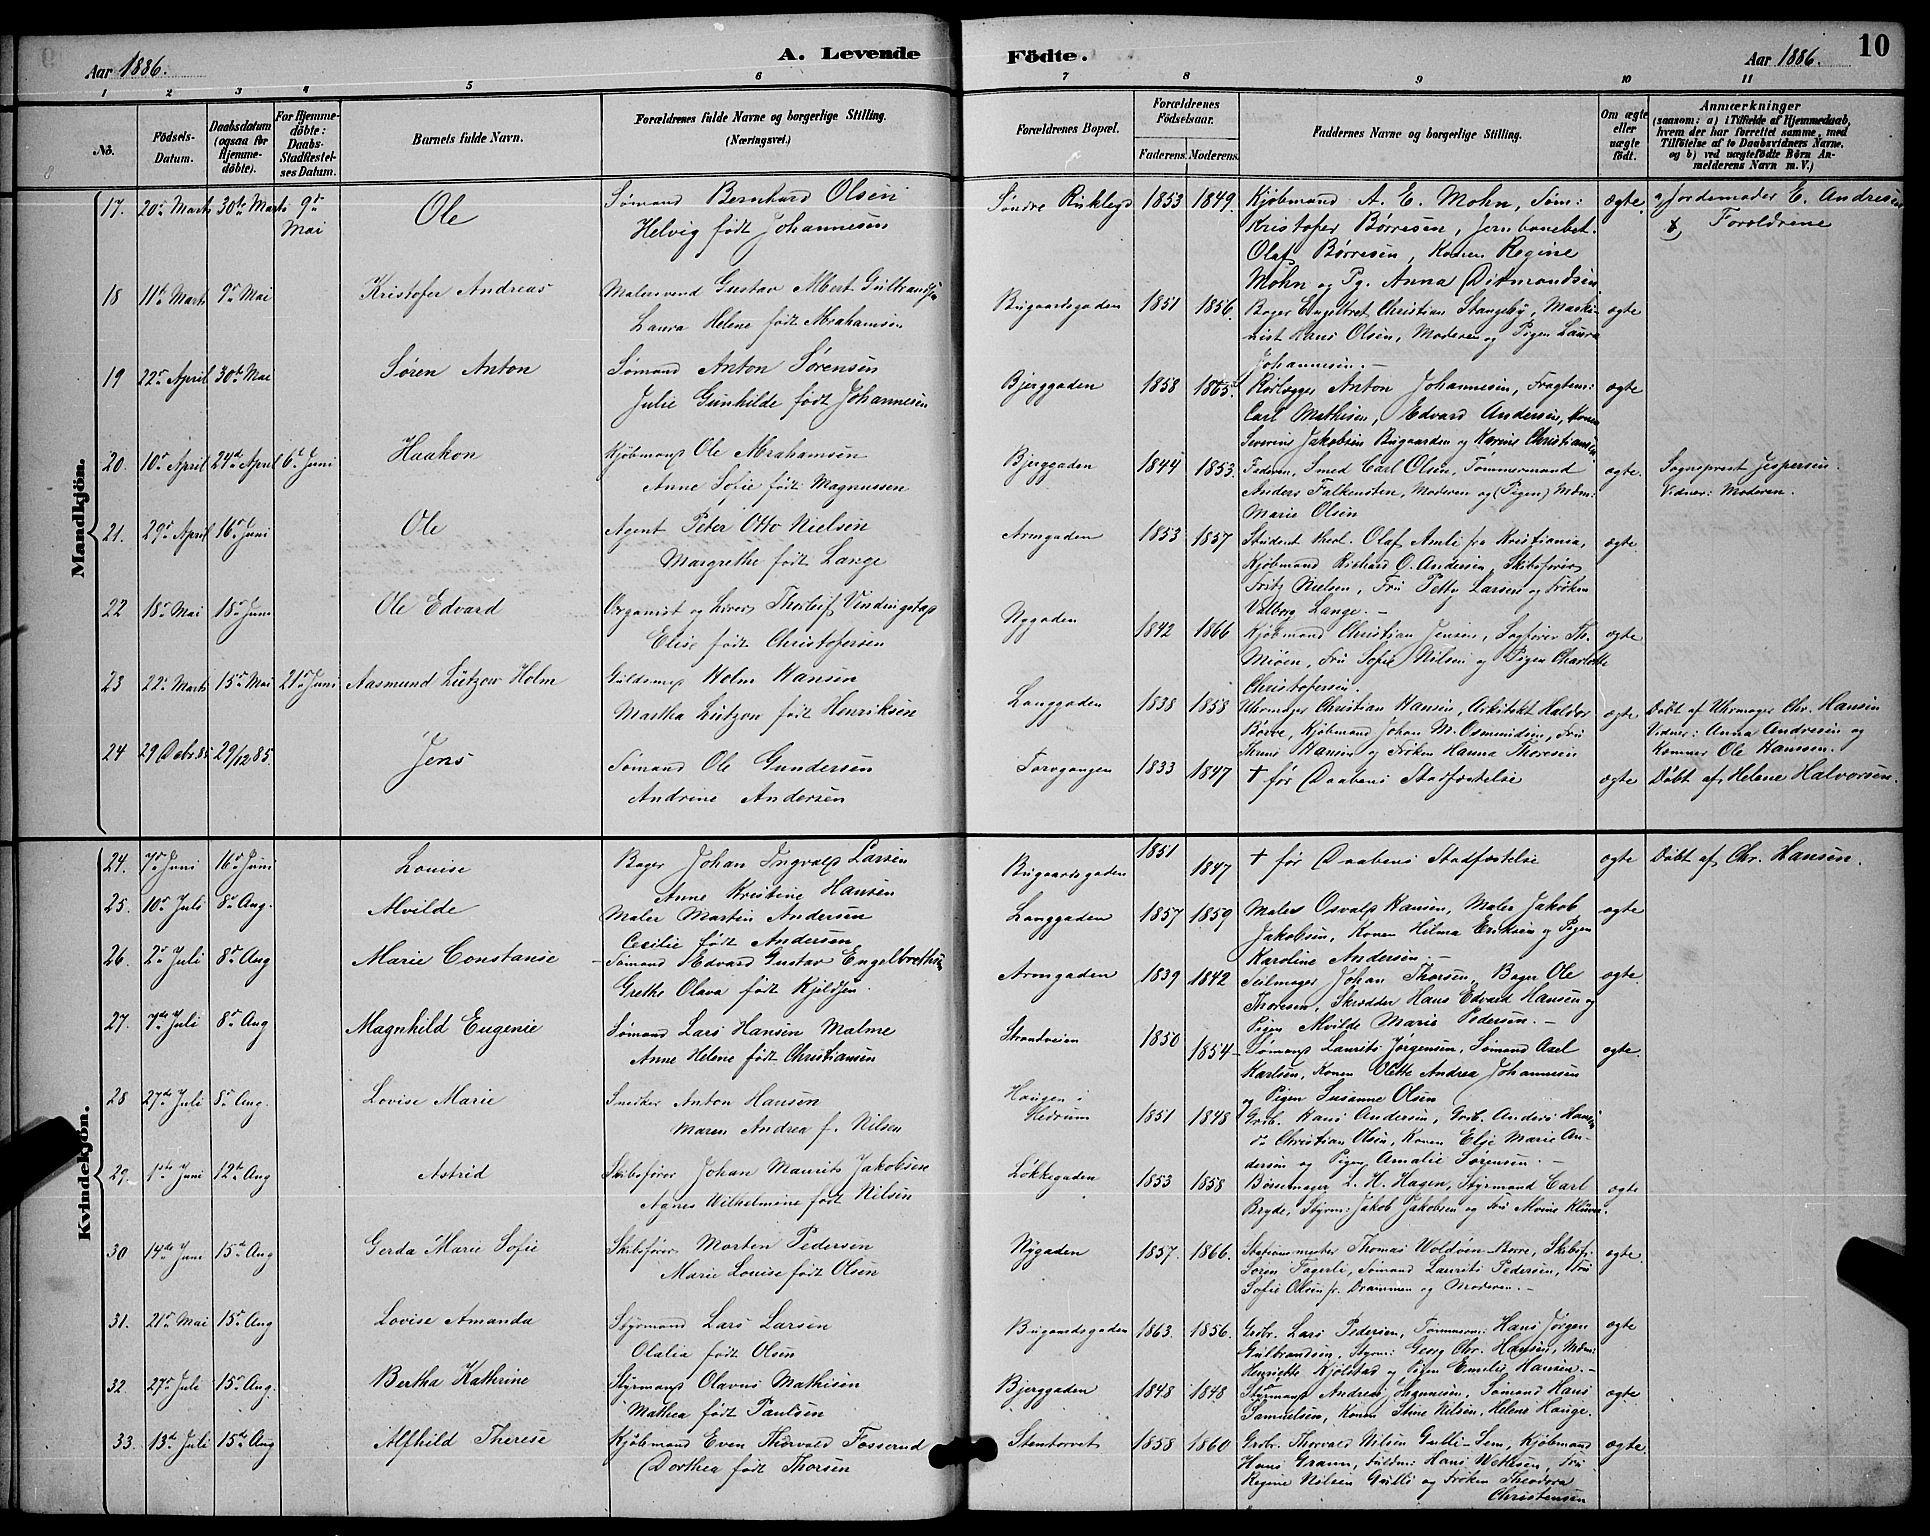 Aar 1886.
A. Levende Födte.
Aar 1886.
10
1 2 3 4 5 6 7 8 9 10 11
No.
Födsels-Datum.
Daabsdatum (ogsaa for Hjemme-döbte).
For Hjemme-döbte: Daabs-Stadfæstel-ses Datum.
Barnets fulde Navn.
Forældrenes fulde Navne og borgerlige Stilling. (Næringsvei.)
Forældrenes Bopæl.
Forældrenes Födselsaar.
Faderens. Moderens.
Faddernes Navne og borgerlige Stilling.
Om ægte eller uægte födt.
Anmærkninger
(saasom: a) i Tilfælde af Hjemmedaab, hvem der har forrettet samme, med Tilföielse af to Daabsvidners Navne, og b) ved uægtefödte Börn An-melderens Navn m. V.)
Mandkjön.
17. 20de Marts 30te Marts 9de Mai Ole Sømand Bernhard Olsen 1853 1849. Kjøbmand A. E. Mohn, Søm: ægte a) Jordemoder E. Andresen
Helvig født Johannesen Kristofer Børresen, Jernbanebet. Foreldrene
Olaf Børresen, Konen Regine
Mohn og Pg. Anna Ditmandsen
18 11te Marts 9de Mai Kristofer Andreas Malersvend Gustav Albert Gulbrandsen Bugaardsgaden 1851 1856. Bager Engelbret Christian Stangeby, Maski- ægte
Laura Helene født Abrahamsen nist Hans Olsen, Moderen og Pigen Laura
Johannesen. —
19 22de April 30te Mai Søren Anton Sømand Anton Sørensen Bjerggaden 1858 1865. Rørlægger Anton Johannesen, Fragtem: ægte
Julie Gunhilde født Johannesen Carl Mathisen, Edvard Andersen, Konen
Severine Jakobsen Bugaarden og Karine Christiansen
20. 10de April 24de April 6te Juni Haakon Kjøbmand Ole Abrahamsen Bjerggaden 1844 1853. Faderen, Smed Carl Olsen, Tømmermand ægte. Sogneprest Jespersen.
Anne Sofie født Magnussen Anders Falkensten, Moderen og (Pigen) Mdm: Vidner: Moderen.
Marie Olsen
21. 29de April 16de Juni Ole Agent Peter Otto Nielsen Armgaden 1853 1857 Student Olaf Amli fra Kristiania, ægte
Margrethe født Lange Kjøbmand Richard O. Andersen, Skibsfører
Fritz Nielsen, Fru Petty Larsen og Frøken
Valborg Lange. —
22 18de Mai 18de Juni Ole Edvard Organist og Lærer Thorleif Vindingstad Nygaden 1842 1866 Kjøbmand Christian Jensen, Sagfører Th. ægte
Elise født Christofersen Miøen, Fru Sofie Nilsen og Pigen Charlotte
Christofersen.
23 22de Marts 15de Mai 21de Juni Aasmund Lützow Holm Guldsmed Holm Hansen Langgaden 1838 1858 Uhrmager Christian Hansen, Arkitekt Haldor ægte Døbt af Uhrmager Chr. Hansen
Martha Lützow født Henriksen Børve, Kjøbmand Johan M. Osmundsen, Fru Vidner: Anna Andresen og
Hansen og Frøken Hanna Thoresen Ole Hanssen.
24 29 Dcbr. 85 29/12 85. Jens Sømand Ole Gundersen Torvgangen 1833 1847 † før Daabens Stadfæstelse ægte Døbt af Helene Halvorsen.
Andrine Andersen
Kvindekjön.
24. 7de Juni 16de Juni Louise Bager Johan Ingvald Larsen Bugaardsgaden 1851 1847 † før Daabens Stadfæstelse ægte Døbt af Chr. Hansen.
Anne Kristine Hansen
25. 10de Juli 8de Aug. Alvilde Maler Martin Andersen Langgaden 1857 1859 Maler Osvald Hansen, Maler Jakob ægte
Cecilie født Andersen Jakobsen, Konen Hilma Eriksen og Pigen
Karoline Andersen. —
26. 2de Juli 8de Aug Marie Constanse Sømand Edvard Gustav Engelbrethsen Armgaden 1839 1842 Seilmager Johan Thorsen, Bager Ole ægte.
Grethe Olava født Kjeldsen. Thoresen, Skrædder Hans Edvard Hansen og
Pigen Alvilde Marie Pedersen. —
27. 7de Juli 8de Aug Magnhild Eugenie Sømand Lars Hansen Malme Strandveien 1850 1854 Sømand Laurits Jørgensen, Sømand Axel ægte.
Anne Helene født Christiansen Karlsen, Konen Olette Andrea Johannesen
og Pigen Susanne Olsen
28 27de Juli 8de Aug. Lovise Marie Snekker Anton Hansen Haugen i Hedrum 1851 1848 Grdb. Hans Andersen, Grdb. Anders Hansen ægte
Maren Andrea f. Nilsen do Christian Olsen, Konen Else Marie An-
dersen og Pigen Amalie Sørensen. —
29. 1ste Juni 12te Aug Astrid Skibsfører Johan Maurits Jakobsen Løkkegaden 1853 1858 Børsemager L. H. Hagen, Styrmand Carl ægte
Agnes Wilhelmine født Nilsen Bryde, Styrm: Jakob Jakobsen og Fru Alvine Klüver.
30 14de Juni 15de Aug Gerda Marie Sofie Skibsfører Morten Pedersen Nygaden 1857. 1866. Stationsmester Thomas Woldsen Borre, Skibsf: ægte.
Marie Louise født Olsen Søren Fagerli, Sømand Laurits Pedersen, Fru
Sofie Olsen fr. Drammen og Moderen. —
31. 21de Mai 15de Aug Lovise Amanda Styrmand Lars Larsen Bugaardsgaden 1863. 1856. Grdbr. Lars Pedersen, Tømmerm: Hans Jørgen ægte
Olalia født Olsen Gulbrandsen, Styrm: Georg Chr. Hansen, Mdm:
Henriette Kjølstad og Pigen Emelie Hansen. —
32. 27de Juli 15de Aug. Bertha Kathrine Styrmand Olavus Mathisen Bjerggaden 1848 1848 Styrmand Andreas Johannesen, Sømand Hans ægte
Mathea født Paulsen Samuelsen, Konen Stine Nilsen, Helene Hauge.
33. 13de Juli 15de Aug Alfhild Therese Kjøbmand Even Thorvald Fosserud Stentorvet 1858 1860 Grdbr. Thorvald Nilsen Gulli - Sem, Kjøbmand ægte.
Dorthea født Thorsen Hans Grann, Guldsm: Hans Wethsen, Fru
Regine Nilsen Gulli og Frøken Theodora
Christensen